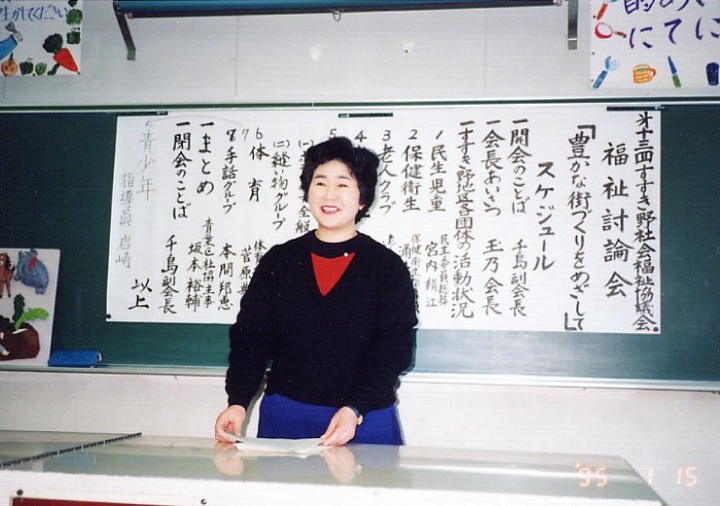 生かしてください
的あい
にてに
第十三回すすき野社会福祉協議会
福祉討論会
「豊かな街づくりをめざして」
スケジュール
一開会のことば 千島副会長
一会長あいさつ 玉乃会長
一すすき野地区各団体の活動状況
1民生児童 民生委員総務 宮内絹江
2保健衛生
3老人クラブ
4
5
(二)縫い物グループ
6体育
7
8手話グループ 本間邦恵
一まとめ 青葉区社協主事 坂本裕輔
一閉会のことば 千島副会長
青少年
指導員 岩崎
以上
'95 1 15